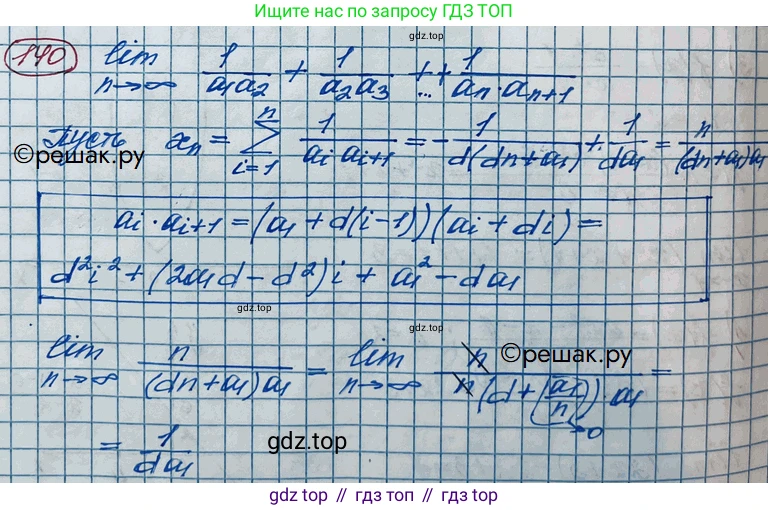 Ищите нас по запросу ГДЗ ТОП
gdz.top
140 lim n→∞ 1/(a₁a₂) + 1/(a₂a₃) + ... + 1/(aₙ·aₙ₊₁)
Пусть xₙ = ∑ i=1 n 1/(aᵢ aᵢ₊₁) = -1/(d(dn+a₁)) + 1/(da₁) = n/((dn+a₁)a₁)
©решак.ру
aᵢ·aᵢ₊₁ = (a₁ + d(i-1))(aᵢ + di) =
d²i² + (2a₁d - d²)i + a₁² - da₁
gdz.top
lim n→∞ n/((dn+a₁)a₁) = lim n→∞ n/(n(d+(a₁/n))·a₁) =
©решак.ру
→0
= 1/(da₁)
gdz.top
gdz top // гдз топ // гдз top